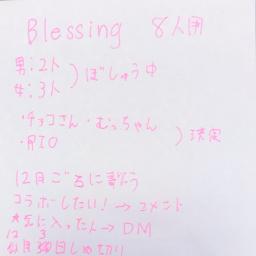 Blessing 8人用
男:2人
女:3人
)ぼしゅう中
・チョコさん・むっちゃん
・RIO
)決定
12月ごろに歌う
コラボしたい!→コメント
気に入った人→DM
12 3
日しめ切り